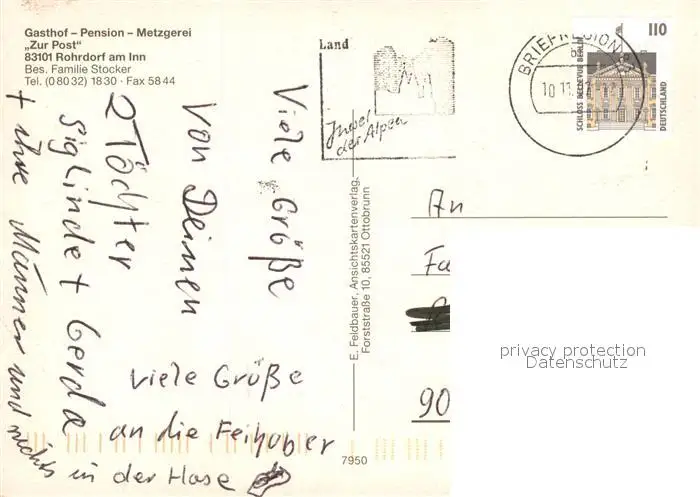 Gasthof - Pension - Metzgerei
„Zur Post"
83101 Rohrdorf am Inn
Bes. Familie Stocker
Tel. (0 80 32) 18 30 · Fax 58 44
Viele Grüße
von Deinen
2 Töchter
Siglinde + Gerda
+ ihre Männer und nichts in der Hose
viele Grüße
an die Feihuber
E. Feldbauer, Ansichtskartenverlag,
Forststraße 10, 85521 Ottobrunn
7950
Land
Juwel
der Alpen
BRIEFREGION
10.11.
110
SCHLOSS BELLEVUE BERLIN
DEUTSCHLAND
An
Fa
90
privacy protection
Datenschutz